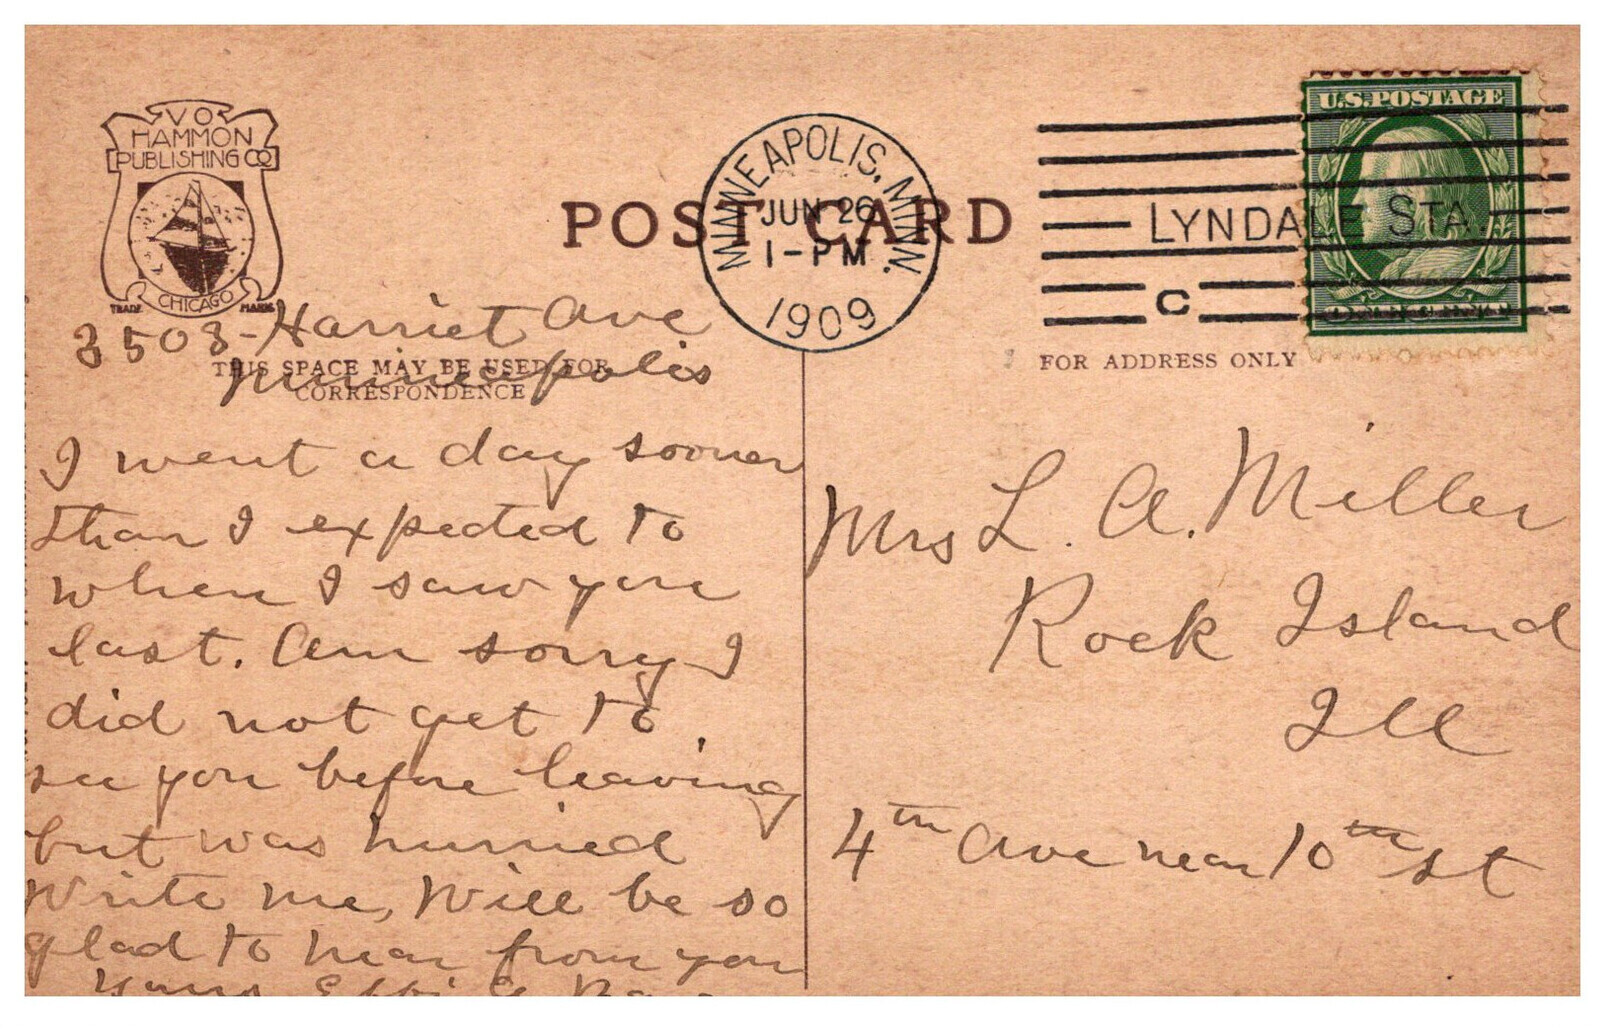 V O
HAMMON
PUBLISHING CO
CHICAGO
TRADE MARK
POST CARD
MINNEAPOLIS, MINN.
JUN 26
1-PM
1909
LYNDALE STA.
C
U.S. POSTAGE
3503-Harriet Ave
Minneapolis
THIS SPACE MAY BE USED FOR
CORRESPONDENCE
FOR ADDRESS ONLY
I went a day sooner
than I expected to
when I saw you
last. Am sorry I
did not get to
see you before leaving
but was hurried
Write me, Will be so
glad to hear from you
Yours
Mrs L. A. Miller
Rock Island
Ill
4th Ave near 10th st